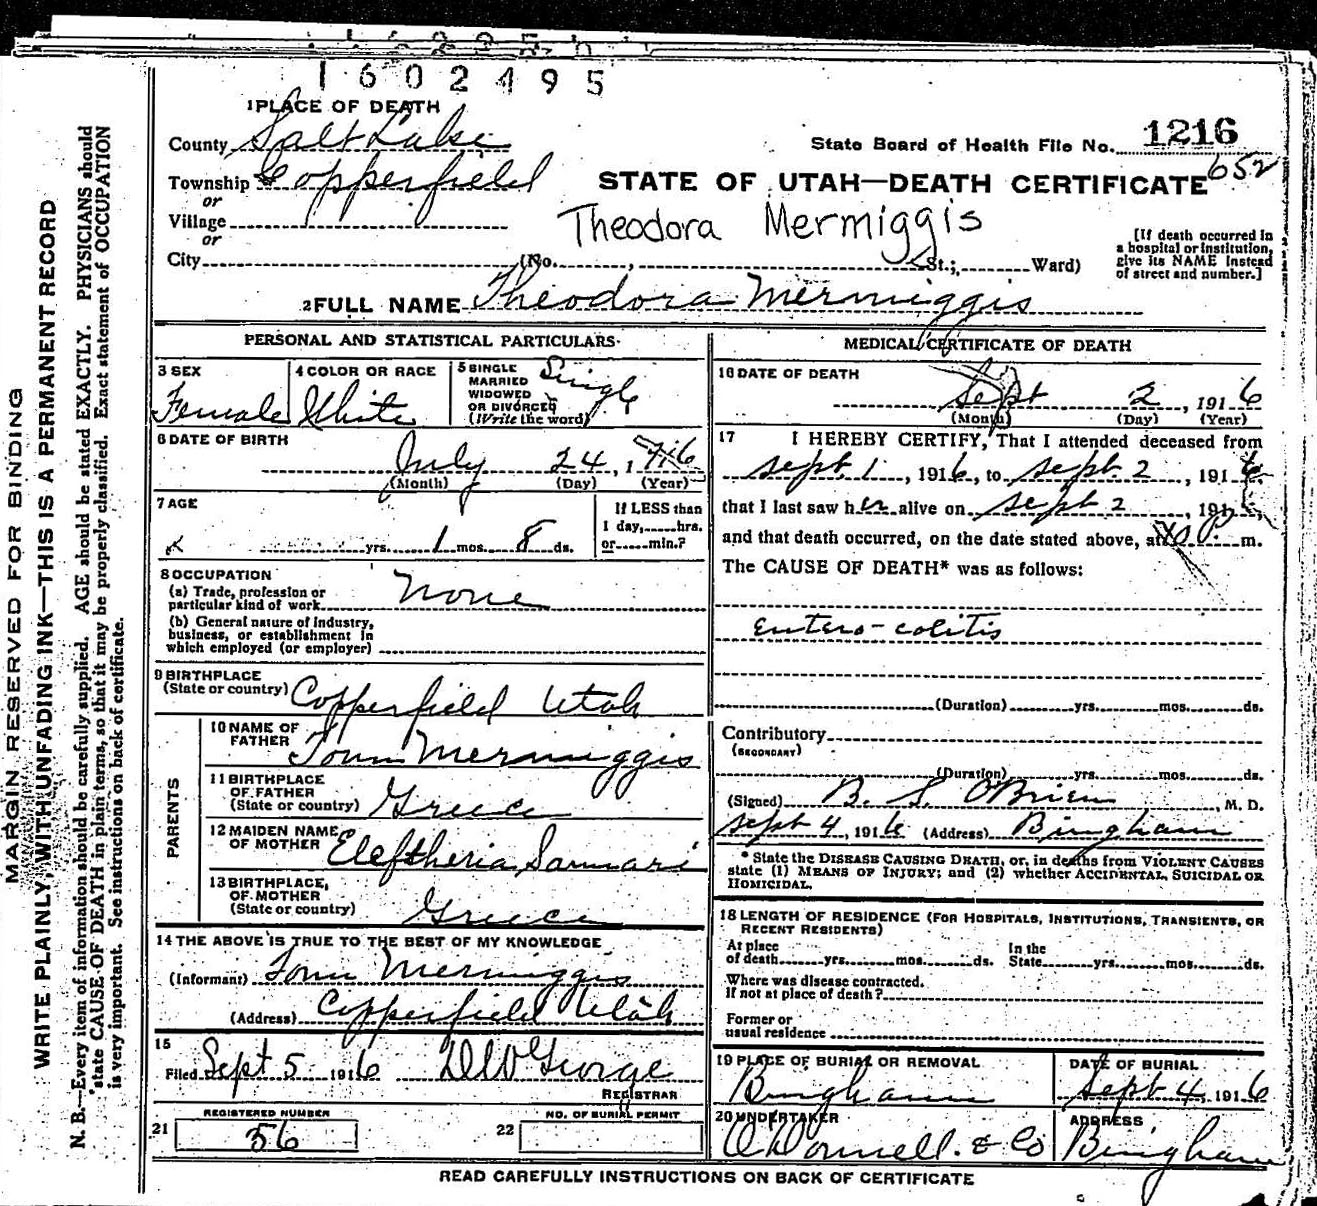 1602495
1 PLACE OF DEATH
County Salt Lake
State Board of Health File No. 1216
652
Township Copperfield
STATE OF UTAH—DEATH CERTIFICATE
or
Village
Theodora Mermiggis
or
City (No. , St.; Ward)
[If death occurred in
a hospital or institution,
give its NAME instead
of street and number.]
2 FULL NAME Theodora Mermiggis
PERSONAL AND STATISTICAL PARTICULARS
3 SEX
Female
4 COLOR OR RACE
White
5 SINGLE
MARRIED
WIDOWED
OR DIVORCED
(Write the word)
Single
6 DATE OF BIRTH
July 24, 1916
(Month) (Day) (Year)
7 AGE
yrs. 1 mos. 8 ds.
If LESS than
1 day, hrs.
or min.?
8 OCCUPATION
(a) Trade, profession or
particular kind of work None
(b) General nature of industry,
business, or establishment in
which employed (or employer)
9 BIRTHPLACE
(State or country) Copperfield Utah
PARENTS
10 NAME OF
FATHER Tom Mermiggis
11 BIRTHPLACE
OF FATHER
(State or country) Greece
12 MAIDEN NAME
OF MOTHER Eleftheria
13 BIRTHPLACE,
OF MOTHER
(State or country) Greece
14 THE ABOVE IS TRUE TO THE BEST OF MY KNOWLEDGE
(Informant) Tom Mermiggis
(Address) Copperfield Utah
15
Filed Sept 5 1916 George
REGISTRAR
REGISTERED NUMBER
21 56
NO. OF BURIAL PERMIT
22
MEDICAL CERTIFICATE OF DEATH
16 DATE OF DEATH
Sept 2, 1916
(Month) (Day) (Year)
17 I HEREBY CERTIFY, That I attended deceased from
Sept. 1, 1916, to Sept. 2, 1916
that I last saw her alive on Sept 2, 191
and that death occurred, on the date stated above, at P. m.
The CAUSE OF DEATH* was as follows:
Entero-colitis
(Duration) yrs. mos. ds.
Contributory
(SECONDARY)
(Duration) yrs. mos. ds.
(Signed) B. S. O'Brien, M. D.
Sept 4, 1916 (Address) Bingham
* State the DISEASE CAUSING DEATH, or, in deaths from VIOLENT CAUSES
state (1) MEANS OF INJURY; and (2) whether ACCIDENTAL, SUICIDAL OR
HOMICIDAL.
18 LENGTH OF RESIDENCE (FOR HOSPITALS, INSTITUTIONS, TRANSIENTS, OR
RECENT RESIDENTS)
At place
of death yrs. mos. ds.
In the
State yrs. mos. ds.
Where was disease contracted.
If not at place of death?
Former or
usual residence
19 PLACE OF BURIAL OR REMOVAL
Bingham
DATE OF BURIAL
Sept 4, 1916
20 UNDERTAKER
O'Donnell & Co
ADDRESS
Bingham
READ CAREFULLY INSTRUCTIONS ON BACK OF CERTIFICATE
MARGIN RESERVED FOR BINDING
WRITE PLAINLY, WITH UNFADING INK—THIS IS A PERMANENT RECORD
N. B.—Every item of information should be carefully supplied. AGE should be stated EXACTLY. PHYSICIANS should
state CAUSE OF DEATH in plain terms, so that it may be properly classified. Exact statement of OCCUPATION
is very important. See instructions on back of certificate.